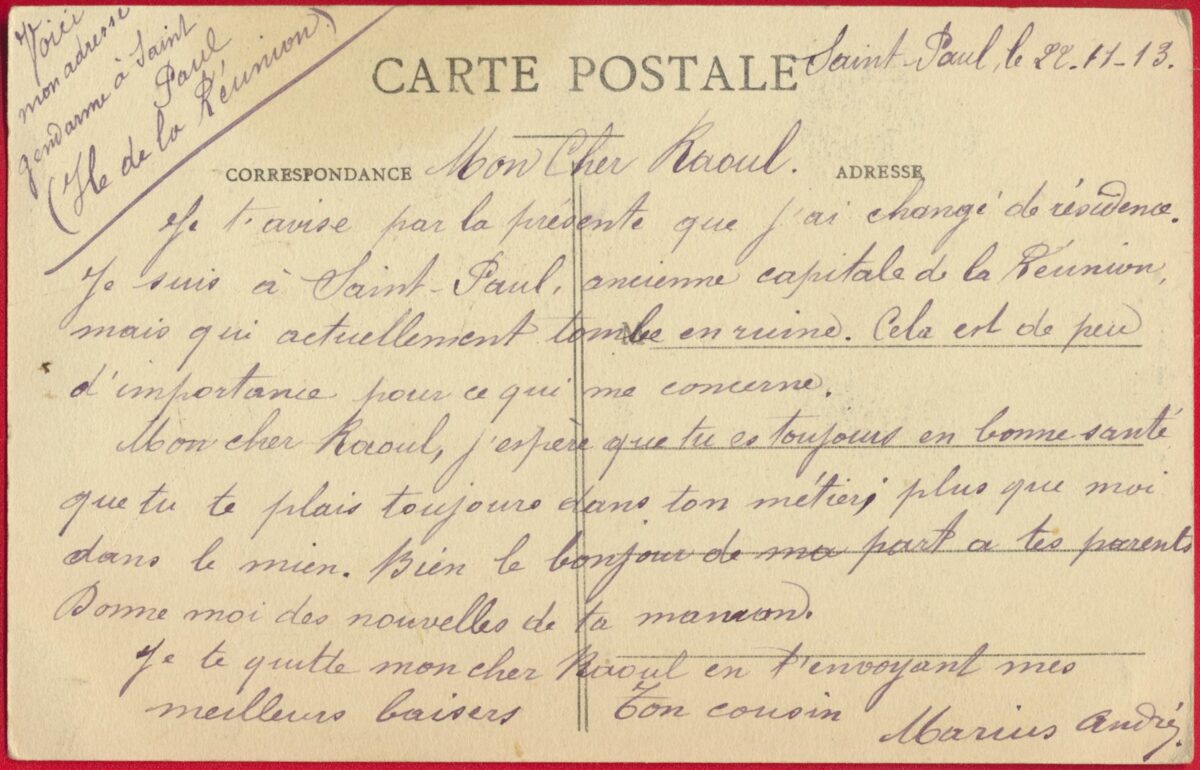 Voici
mon adresse
gendarme à Saint
Paul
(Ile de la Réunion.)
CARTE POSTALE
Saint-Paul, le 22-11-13.
CORRESPONDANCE
Mon Cher Raoul.
ADRESSE
Je t'avise par la présente que j'ai changé de résidence.
Je suis à Saint-Paul, ancienne capitale de la Réunion,
mais qui actuellement tombe en ruine. Cela est de peu
d'importance pour ce qui me concerne.
Mon cher Raoul, j'espère que tu es toujours en bonne santé
que tu te plais toujours dans ton métier; plus que moi
dans le mien. Bien le bonjour de ma part a tes parents
Donne moi des nouvelles de ta maman.
Je te quitte mon cher Raoul en t'envoyant mes
meilleurs baisers Ton cousin
Marius André.